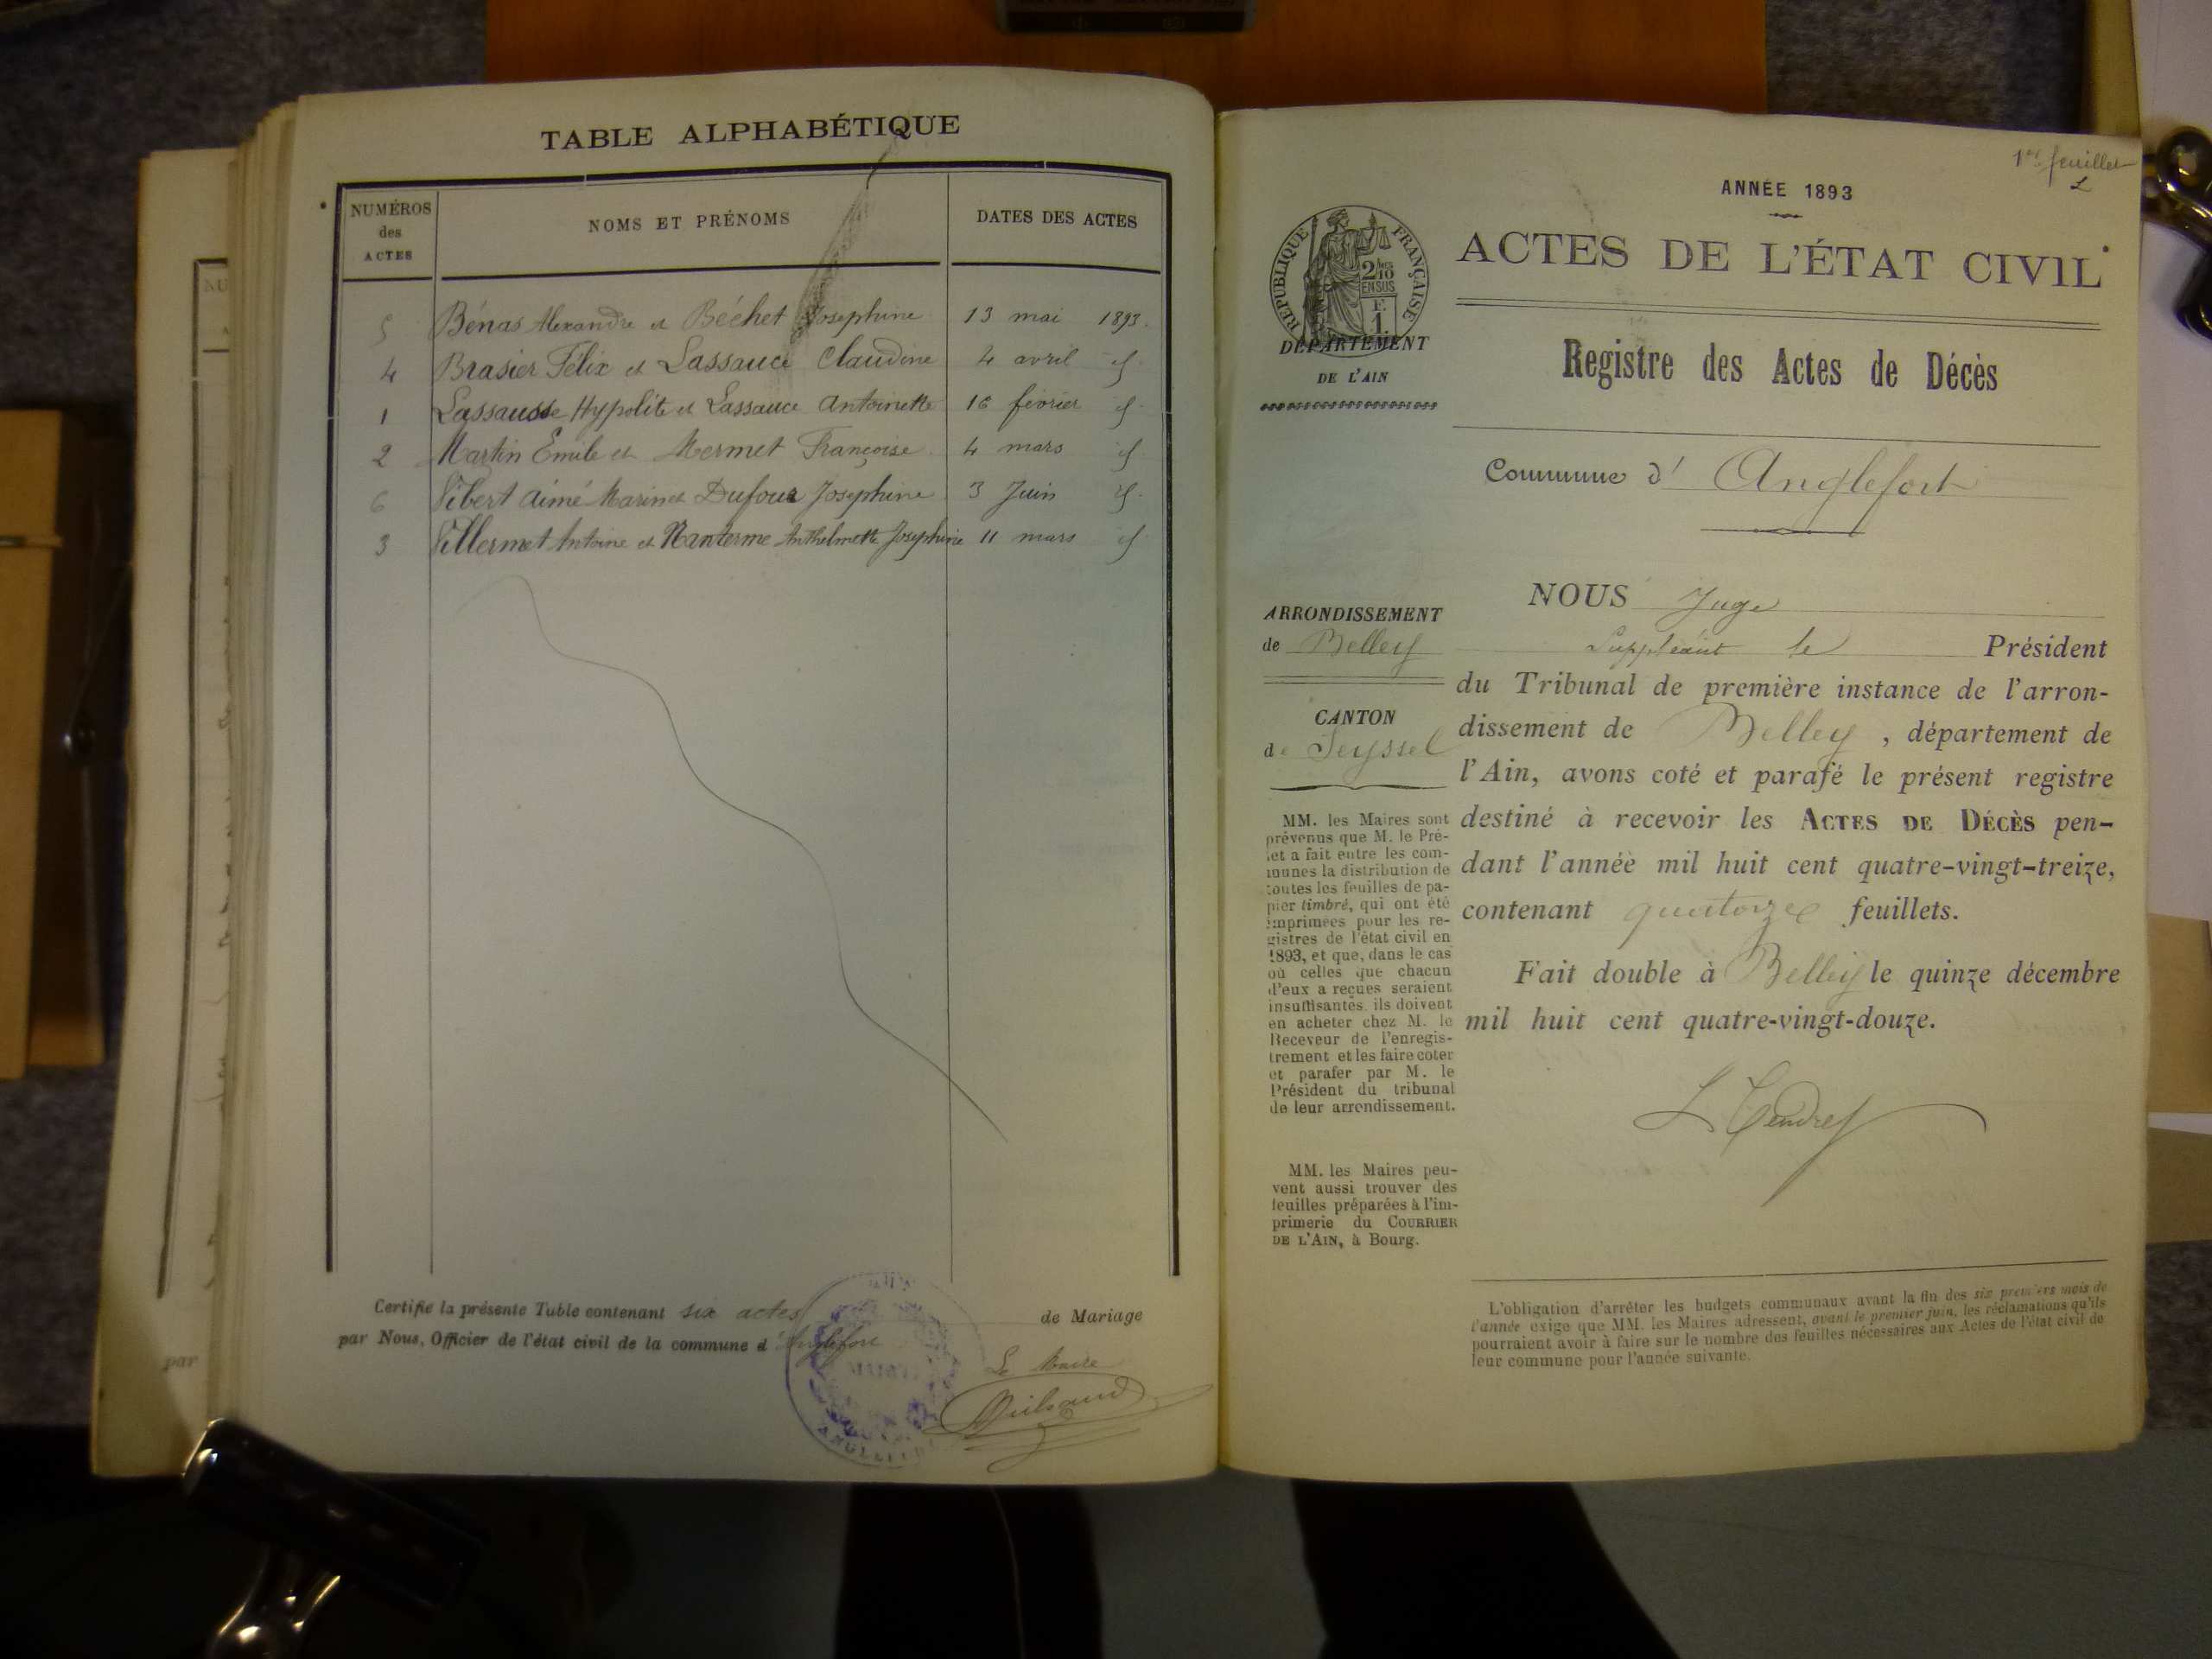 TABLE ALPHABÉTIQUE
NUMÉROS
des
ACTES
NOMS ET PRÉNOMS
DATES DES ACTES
5 Bénas Alexandre et Béchet Josephine 13 mai 1893.
4 Brasier Félix et Lassauce Claudine 4 avril id.
1 Lassausse Hypolite et Lassauce Antoinette 16 février id.
2 Martin Emile et Mermet Françoise 4 mars id
6 Vibert Aimé Marin et Dufour Josephine 3 Juin id.
3 Villermet Antoine et Nanterme Anthelmette Josephine 11 mars id
Certifié la présente Table contenant six actes de Mariage
par Nous, Officier de l'état civil de la commune d'Anglefort
Le Maire
MAIRIE
par
NU
1er feuillet
ANNÉE 1893
RÉPUBLIQUE FRANÇAISE
2/10
EN SUS
F.
1.
ACTES DE L'ÉTAT CIVIL
DÉPARTEMENT
DE L'AIN
Registre des Actes de Décès
Commune d' Anglefort
ARRONDISSEMENT
de Belley
CANTON
de Seyssel
MM. les Maires sont
prévenus que M. le Pré-
fet a fait entre les com-
munes la distribution de
toutes les feuilles de pa-
pier timbré, qui ont été
imprimées pour les re-
gistres de l'état civil en
1893, et que, dans le cas
où celles que chacun
d'eux a reçues seraient
insuffisantes, ils doivent
en acheter chez M. le
Receveur de l'enregis-
trement et les faire coter
et parafer par M. le
Président du tribunal
de leur arrondissement.
MM. les Maires peu-
vent aussi trouver des
feuilles préparées à l'im-
primerie du COURRIER
DE L'AIN, à Bourg.
NOUS Juge
Suppléant le Président
du Tribunal de première instance de l'arron-
dissement de Belley, département de
l'Ain, avons coté et parafé le présent registre
destiné à recevoir les ACTES DE DÉCÈS pen-
dant l'année mil huit cent quatre-vingt-treize,
contenant quatorze feuillets.
Fait double à Belley le quinze décembre
mil huit cent quatre-vingt-douze.
L'obligation d'arrêter les budgets communaux avant la fin des six premiers mois de
l'année exige que MM. les Maires adressent, avant le premier juin, les réclamations qu'ils
pourraient avoir à faire sur le nombre des feuilles nécessaires aux Actes de l'état civil de
leur commune pour l'année suivante.